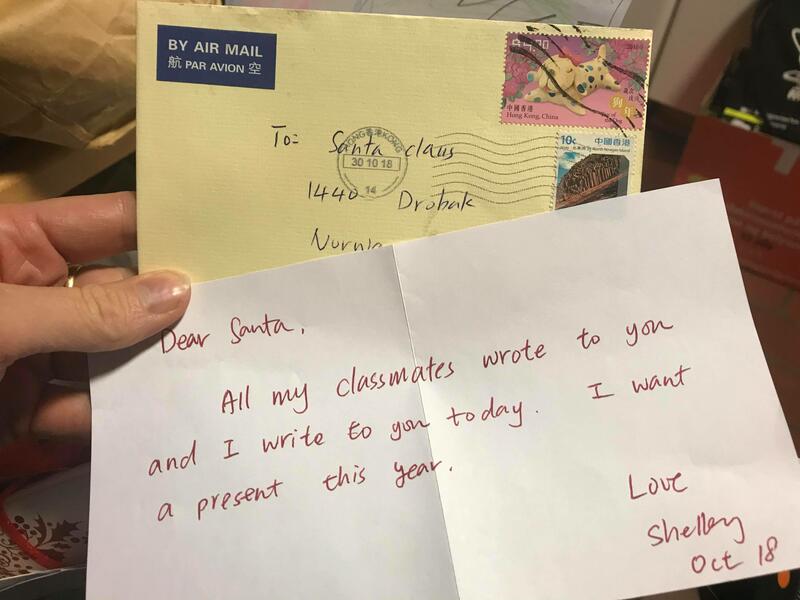 BY AIR MAIL
航 PAR AVION 空
中國香港
Hong Kong, China
狗年
10c 中國香港
HONG KONG 香港
30 10 18
14
To: Santa claus
1440 Drobak
Dear Santa,
All my classmates wrote to you
and I write to you today. I want
a present this year.
Love
Shelley
Oct 18